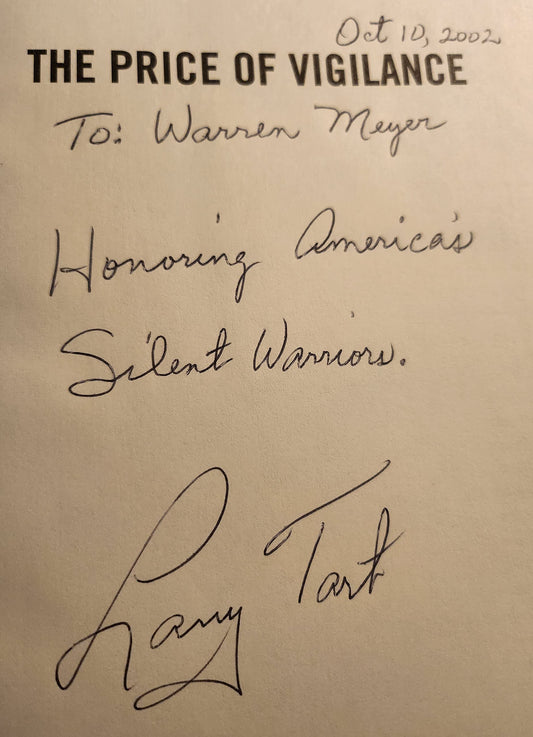 Oct 10, 2002
THE PRICE OF VIGILANCE
To: Warren Meyer
Honoring America's
Silent Warriors.
Larry Tart